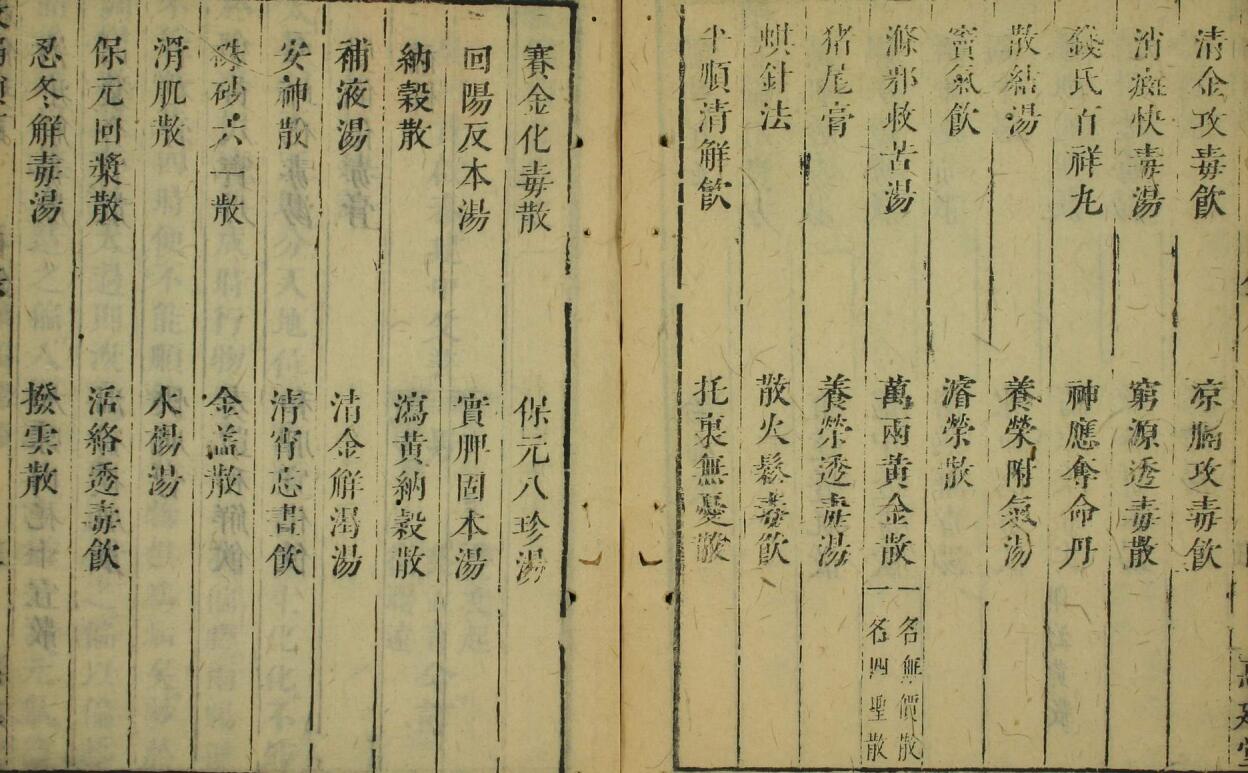 清金攻毒飲 凉膈攻毒飲
消癍快毒湯 窮源透毒散
錢氏百祥丸 神應奪命丹
散結湯 養榮附氣湯
實氣飲 濬榮散
滌邪救苦湯 萬兩黃金散 一名無價散 一名四聖散
猪尾膏 養榮透毒湯
蜞針法 散火鬆毒飲
半順清解飲 托裏無憂散
賽金化毒散 保元八珍湯
回陽反本湯 實脾固本湯
納穀散 瀉黃納穀散
補液湯 清金解渴湯
安神散 清宵忘晝飲
硃砂六一散 金盖散
滑肌散 水楊湯
保元回漿散 活絡透毒飲
忍冬解毒湯 撥雲散